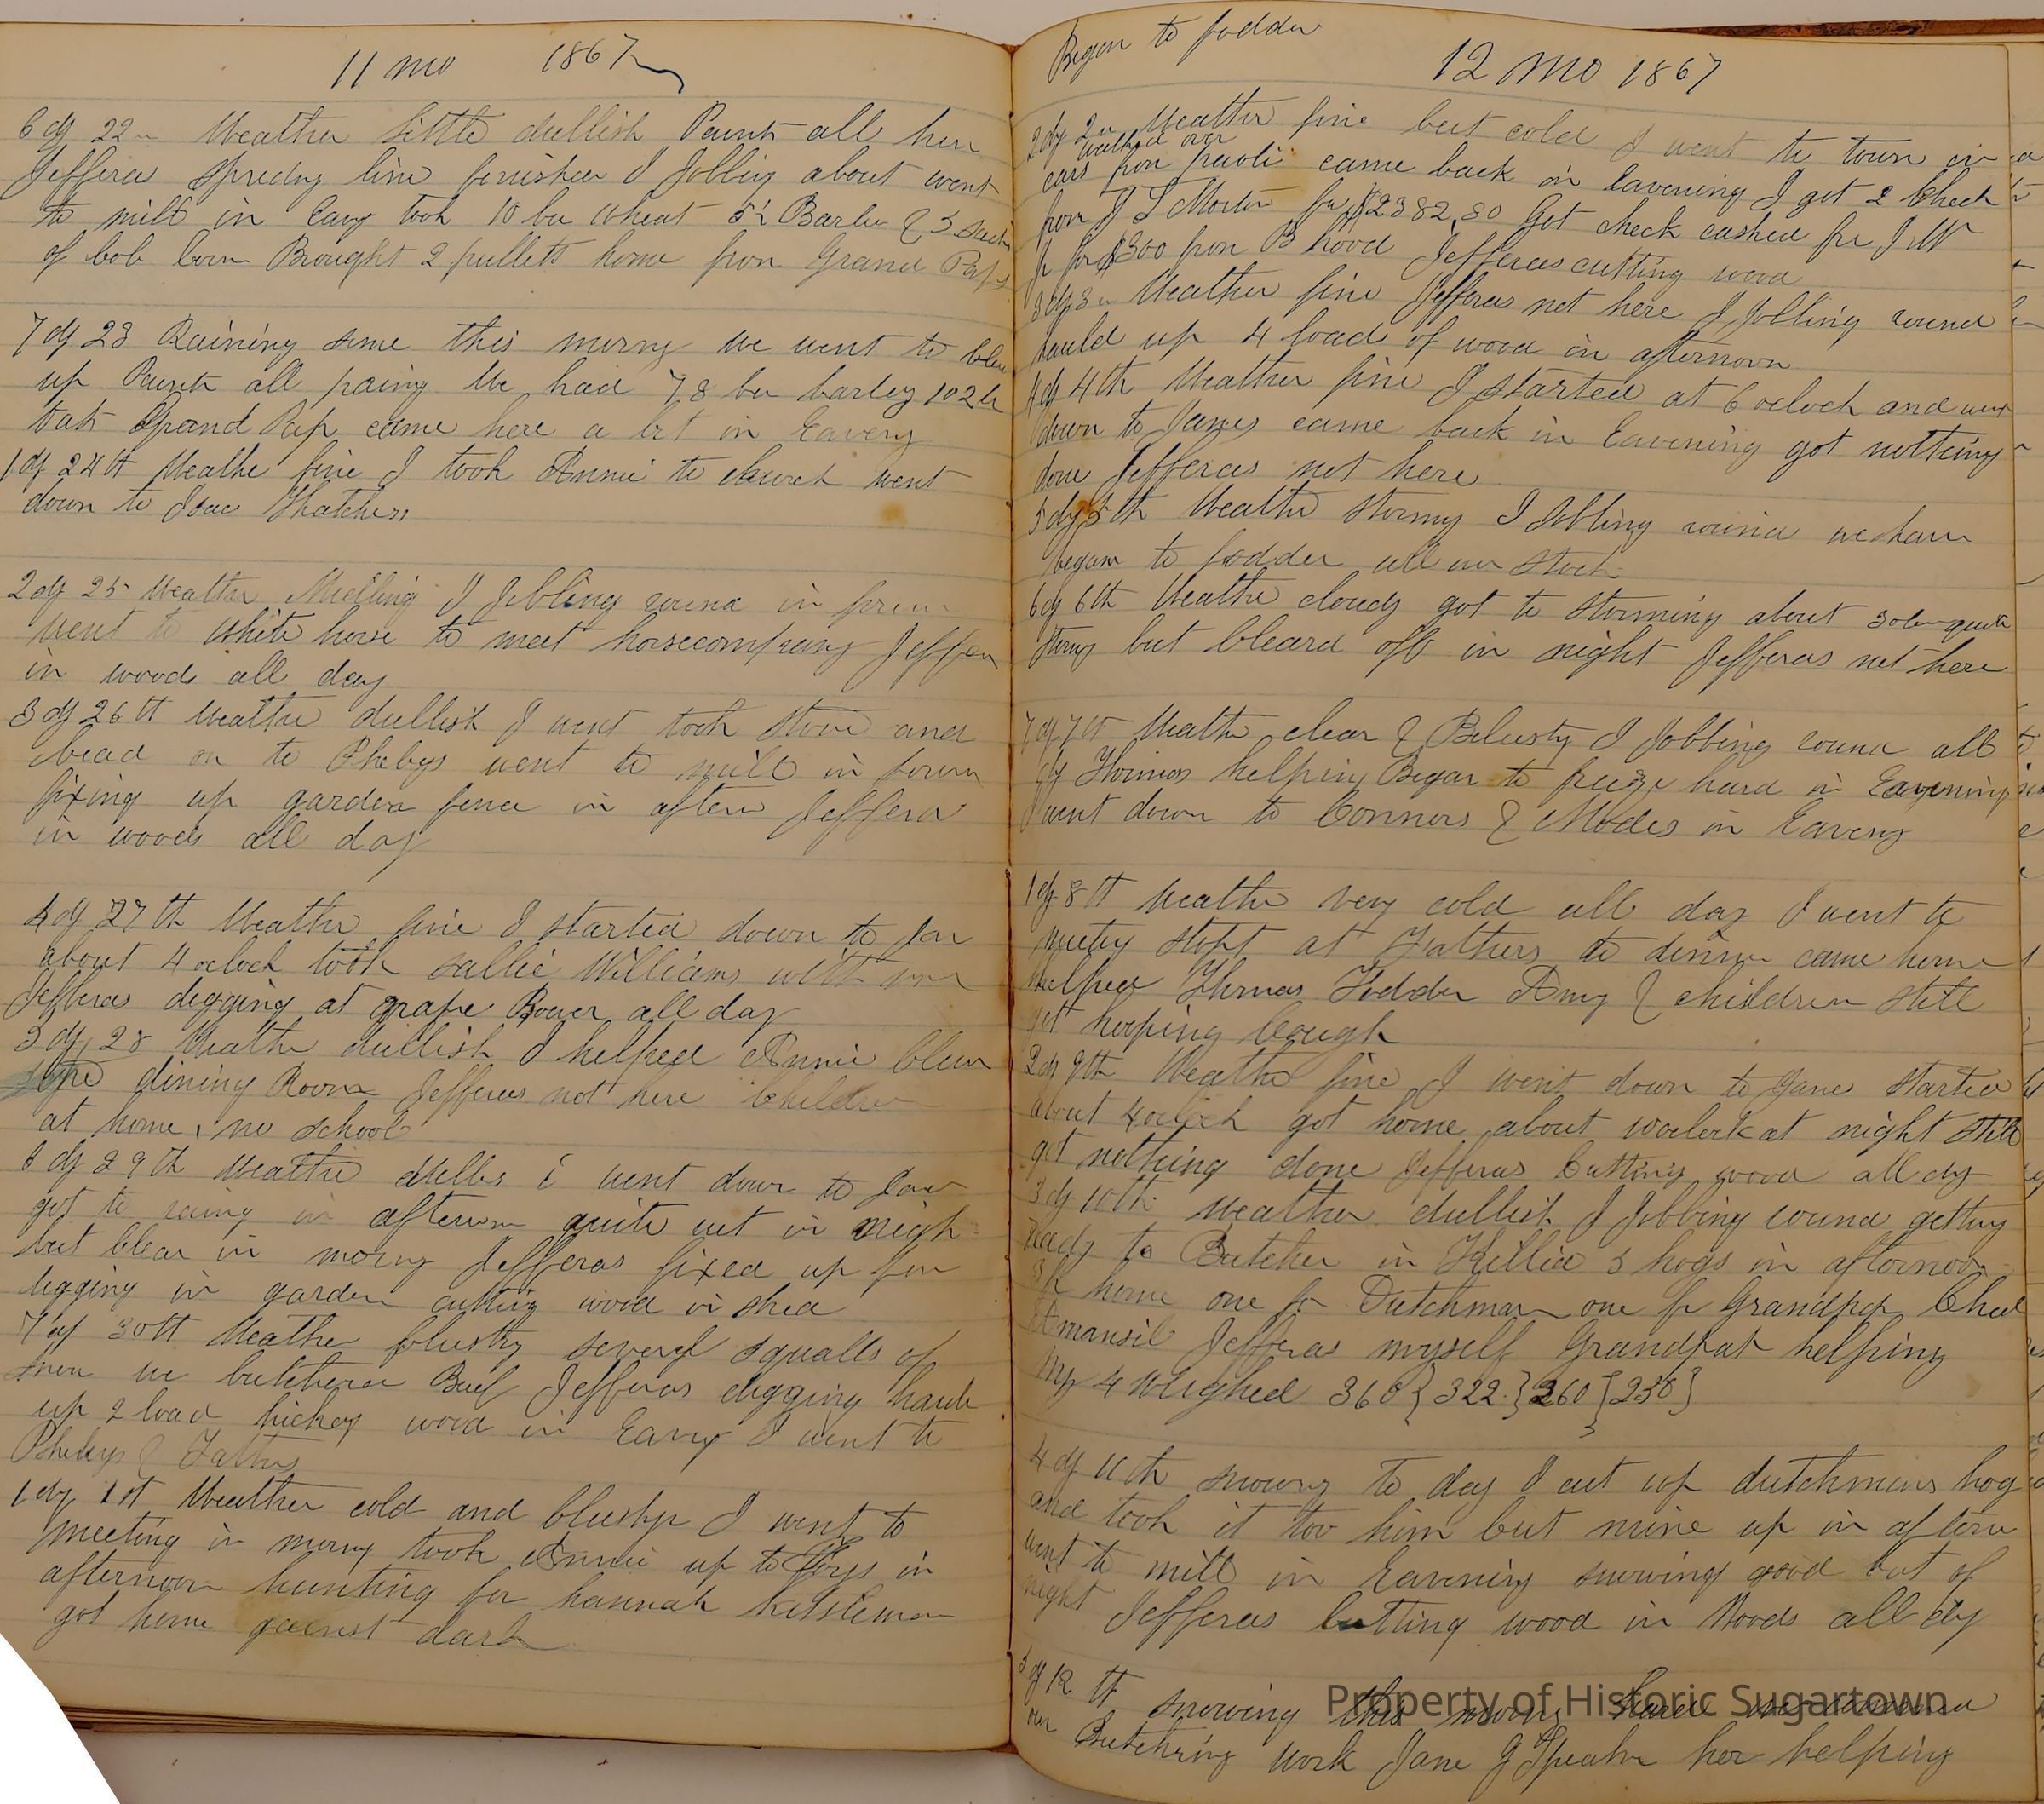 11 mo 1867
6 dy 22n Weather little dullish Paints all here
Jefferas Spredng lime finished I Jobbing about went
to mill in Eavg took 10 bu Wheat 5½ Barley & 3 sacks
of Cob Corn Brought 2 pullets home from Grand Paps
7 dy 23 Raining some this morng We went to Clen
up Paints all paing We had 78 bu barley 102 b
Oats Grand Pap came here a bit in Eaveng
1 dy 24th Weathe fine I took Annie to Church went
down to Isac Thatchers
2 dy 25 Weather Melling I Jobling round in foren
went to White horse to meet horsecompany Jeffera
in woods all day
3 dy 26th Weather dullish I went took Stove and
bead on to Phebys went to mill in foren
fixing up garden fence in aftern Jeffera
in woods all day
4 dy 27th Weather fine I started down to Jan
about 4 oclock took Sallie Williams with me
Jefferas digging at grape Bower all day
5 dy 28 Weathe dullish I helped Annie Clean
dining Room Jefferas not here Children
at home, no school
6 dy 29th Weather dulls i went down to Jan
got to raing in afternon quite wet in nigh
but Clear in morng Jefferas fixed up for
digging in garden cutting wood in shed
7 dy 30th Weathe blustry severl squalls of
snow we butchered Bull Jefferas digging hauld
up 2 load hickey wood in Eavng I went to
Phebys & Fathers
1 dy 1st Weather cold and blustry I went to
meeting in morng took Annie up to in
afternoon hunting for hannah
got home against dark
Began to fodder
12 mo 1867
2 dy 2n Weather fine but cold I went to town in
walked over
cars from paoli came back in Eavening I got 2 Check
from J T Morton for $2382,80 Got check cashed for J W
for $300 from B hood Jefferas cutting wood
3 dy 3n Weather fine Jefferas not here I Jobling round
hauld up 4 loads of wood in afternoon
4 dy 4th Weather fine I started at 6 oclock and went
down to Janes came back in Eavening got nothing
done Jefferas not here
5 dy 5th Weathe Stormy I Jobling round we have
begun to fodder all our stock
6 dy 6th Weathe cloudy got to storming about 3 oclo quite
stormy but Cleard off in night Jefferas not here
7 dy 7th Weathe clear & Blusty I Jobbing round all
dy Thomas helping Began to freeze hard in Eavening
I went down to Connors & Modes in Eaveng
1 dy 8th Weathe very cold all day I went to
meeting stopt at Fathers to dinner came home
helped Thomas Fodder Amy & children still
got hooping Cough
2 dy 9th Weathe fine I went down to Janes Started
about 4 oclock got home about oclock at night still
got nothing done Jefferas Cutting wood all dy
3 dy 10th Weather dullish I Jobbing round getting
ready to Butcher in Killed 5 hogs in afternoon
home one for Dutchman one fr Grandpap Ched
Jefferas myself Grandpap helping
My 4 weighed 360 } 322 } 260 } 238 }
4 dy 11th snowing to day I cut up dutchmans hog
and took it too him but mine up in aftern
went to mill in Eavening snowing good bit of
night Jefferas Cutting wood in Woods all dy
5 dy 12th snowing this morng hard we
our Butchring work Jane her helping
Property of Historic Sugartown